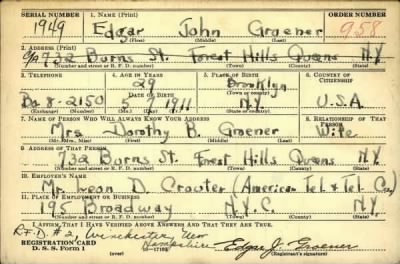 SERIAL NUMBER 1. NAME (Print) ORDER NUMBER
1949 Edgar John Groener 958
(First) (Middle) (Last)
2. ADDRESS (Print)
732 Burns St. Forest Hills Queens N.Y.
(Number and street or R. F. D. number) (Town) (County) (State)
3. TELEPHONE 4. AGE IN YEARS 5. PLACE OF BIRTH 6. COUNTRY OF CITIZENSHIP
29 Brooklyn
(Town or county)
Bo 8-2150 DATE OF BIRTH
5 9 1911 N.Y. U.S.A.
(Exchange) (Number) (Mo.) (Day) (Yr.) (State or country)
7. NAME OF PERSON WHO WILL ALWAYS KNOW YOUR ADDRESS 8. RELATIONSHIP OF THAT PERSON
Mrs. Dorothy B. Groener Wife
(Mr., Mrs., Miss) (First) (Middle) (Last)
9. ADDRESS OF THAT PERSON
732 Burns St. Forest Hills Queens N.Y.
(Number and street or R. F. D. number) (Town) (County) (State)
10. EMPLOYER'S NAME
Mr. Leon D. Crowter (American Tel. & Tel. Co.)
11. PLACE OF EMPLOYMENT OR BUSINESS
195 Broadway N.Y.C. N.Y.
(Number and street or R. F. D. number) (Town) (County) (State)
I AFFIRM THAT I HAVE VERIFIED ABOVE ANSWERS AND THAT THEY ARE TRUE.
R.F.D. #2, Winchester, New Hampshire
REGISTRATION CARD
D. S. S. Form 1 Edgar J. Groener
(Registrant's signature)